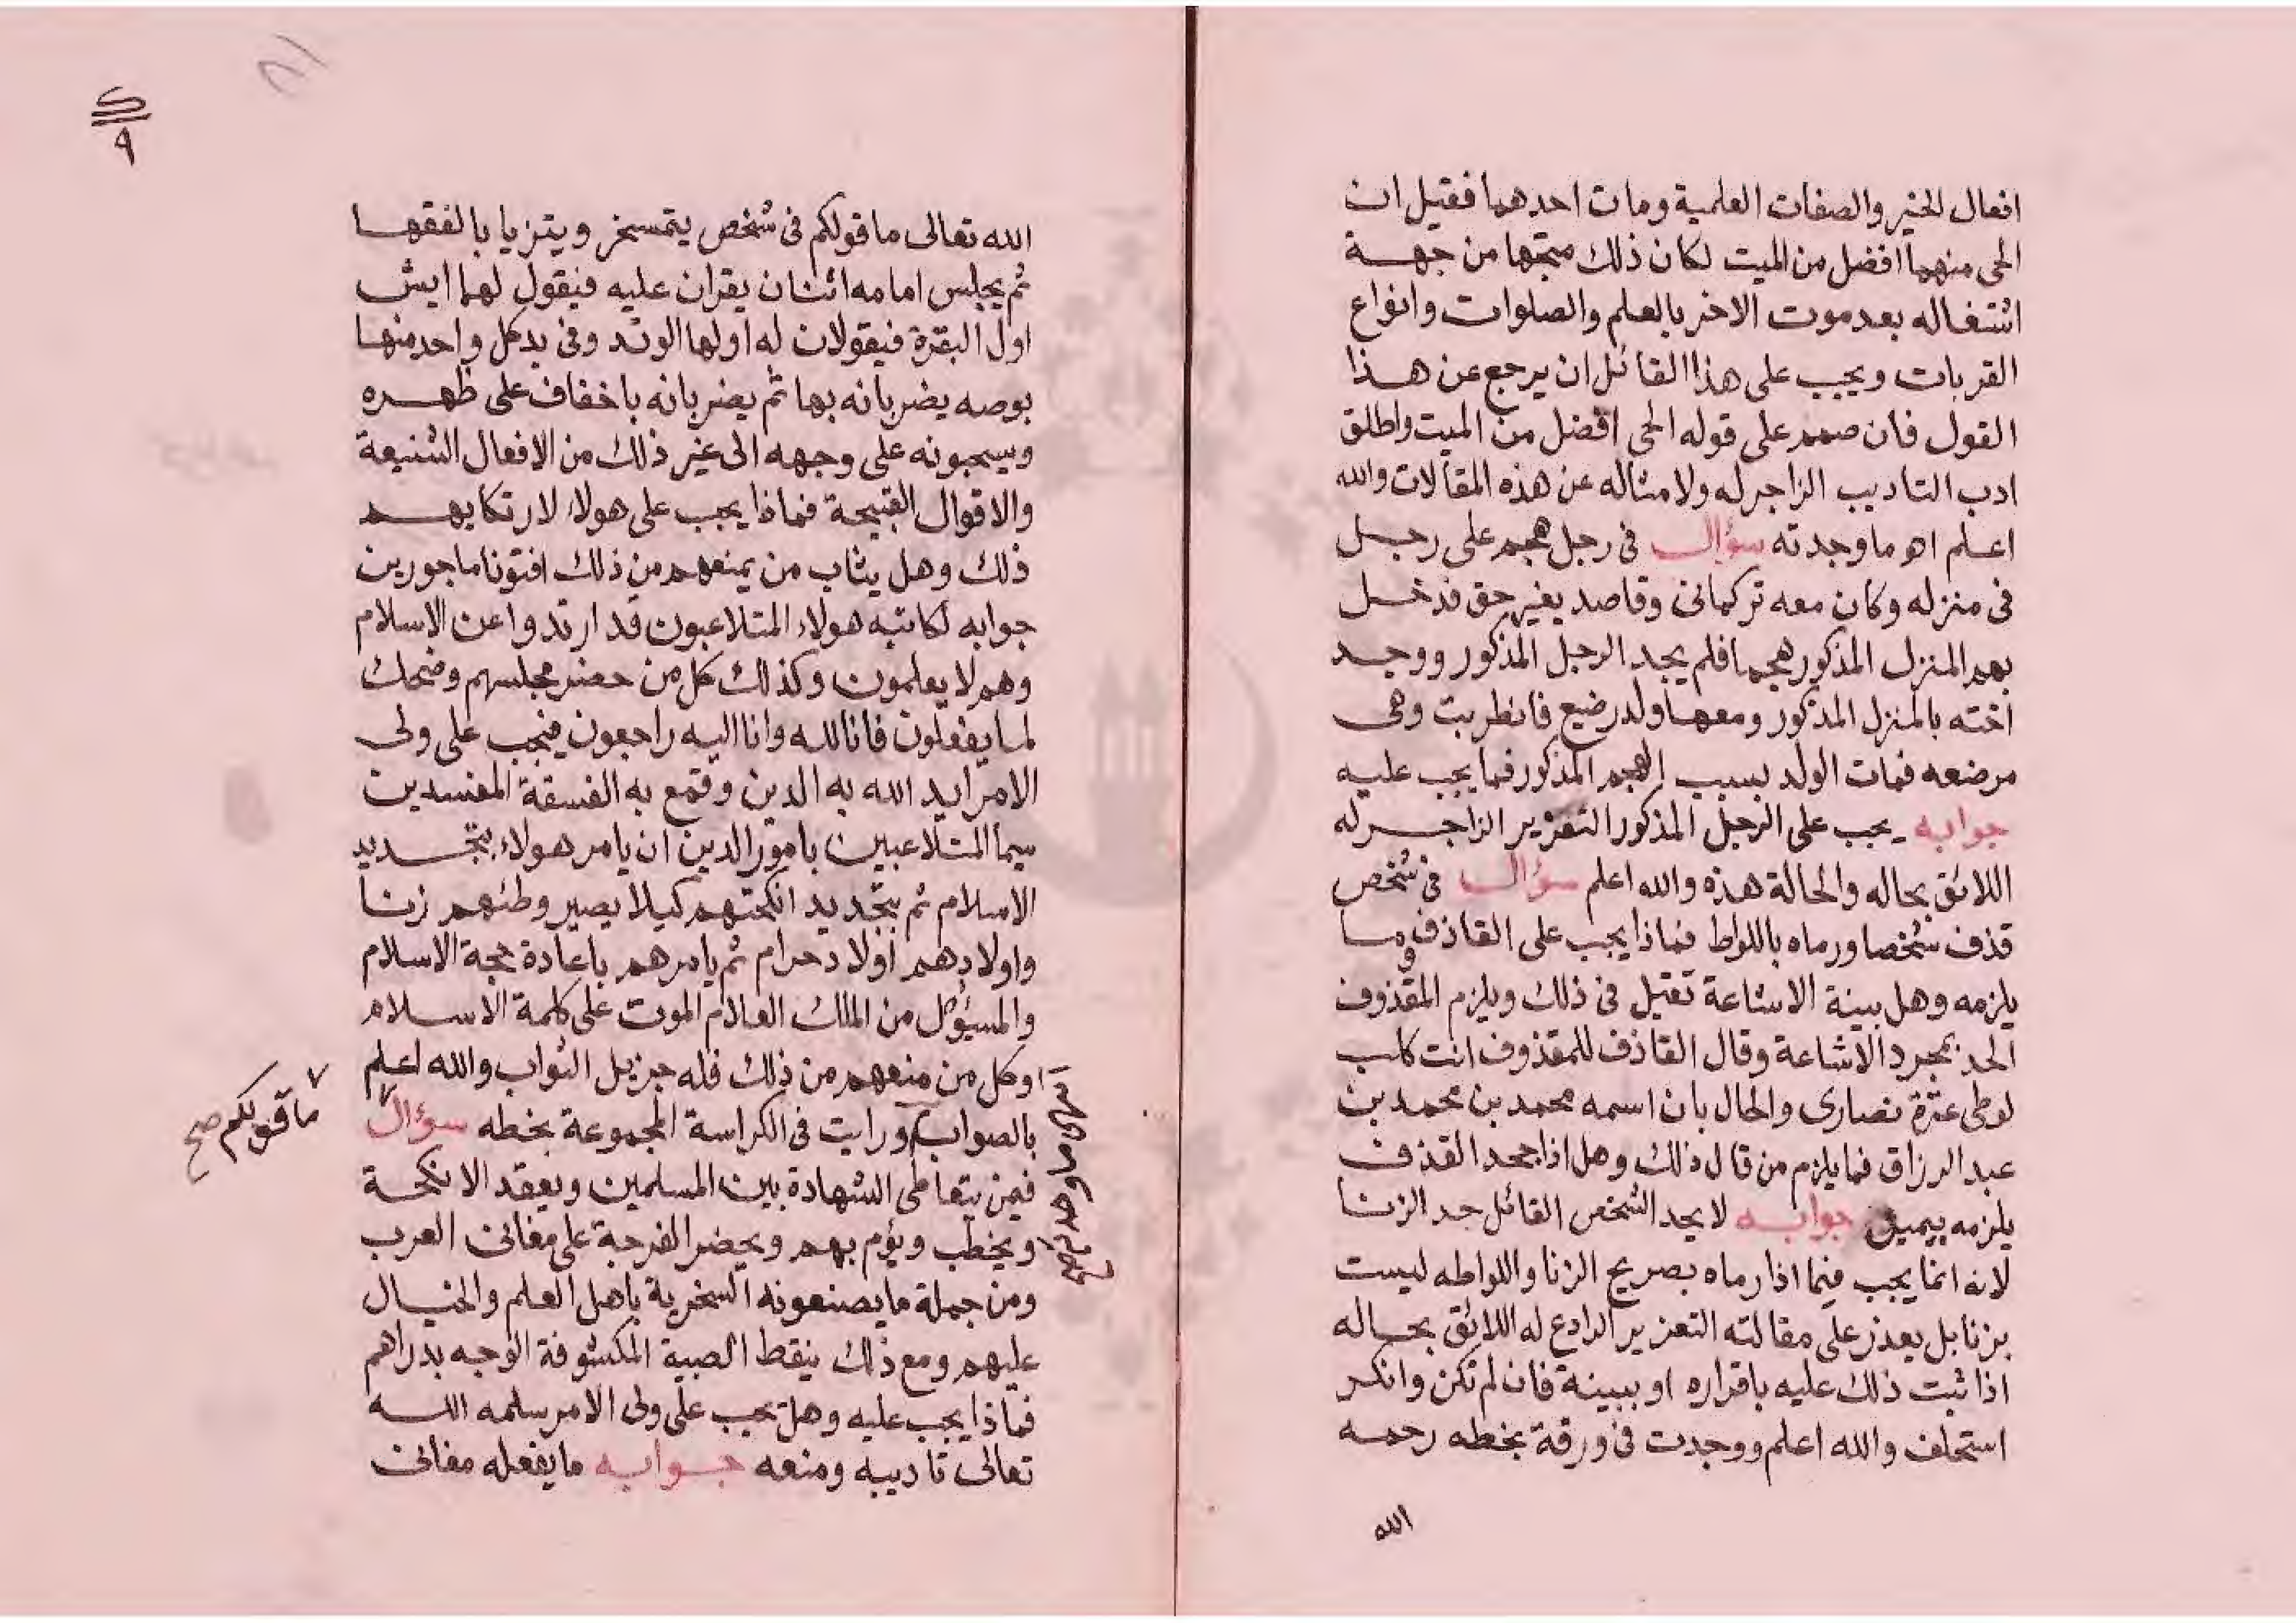 افعال الخير والصفات العلمية ومات احدهما فقيل ان
الحى منهما افضل من الميت لكان ذلك متجها من جهة
اشتغاله بعد موت الاخر بالعلم والصلوات وانواع
القربات ويجب على هذا القائل ان يرجع عن هذا
القول فان صمم على قوله الحى افضل من الميت واطلق
ادب التاديب الزاجر له ولامثاله عن هذه المقالات والله
اعلم اه ما وجدته سؤال فى رجل هجم على رجل
فى منزله وكان معه تركمانى وقاصد بغير حق فدخل
بهم المنزل المذكور هجما فلم يجد الرجل المذكور ووجد
اخته بالمنزل المذكور ومعها ولد رضيع فانطربت وهى
مرضعه فمات الولد بسبب الهجم المذكور فما يجب عليه
جوابه يجب على الرجل المذكور التعزير الزاجر له
اللائق بحاله والحالة هذه والله اعلم سؤال فى شخص
قذف شخصا ورماه باللواط فماذا يجب على القاذف وما
يلزمه وهل بينة الاشاعة تقبل فى ذلك ويلزم المقذوف
الحد بمجرد الاشاعة وقال القاذف للمقذوف انت كلب
لوطى عترة نصارى والحال بان اسمه محمد بن محمد بن
عبد الرزاق فما يلزم من قال ذلك وهل اذا جحد القذف
يلزمه يمين جوابه لا يحد الشخص القائل حد الزنا
لانه انما يجب فيما اذا رماه بصريح الزنا واللواطه ليست
بزنا بل يعذر على مقالته التعزير الرادع له اللائق بحاله
اذا ثبت ذلك عليه باقراره او ببينة فان لم تكن وانكر
استحلف والله اعلم ووجدت فى ورقة بخطه رحمه
الله
٩
الله تعالى ما قولكم فى شخص يتمسخر ويتزيا بالفقها
ثم يجلس امامه اثنان يقران عليه فيقول لهما ايش
اول البقرة فيقولان له اولها الوتد وفى يد كل واحد منها
بوصه يضربانه بها ثم يضربانه باخفاف على ظهره
ويسحبونه على وجهه الى غير ذلك من الافعال الشنيعة
والاقوال القبيحة فماذا يجب على هولاء لارتكابهم
ذلك وهل يثاب من يمنعهم من ذلك افتونا ماجورين
جوابه لكاتبه هولاء المتلاعبون قد ارتدوا عن الاسلام
وهم لا يعلمون وكذلك كل من حضر مجلسهم وضحك
لما يفعلون فانا لله وانا اليه راجعون فيجب على ولى
الامر ايد الله به الدين وقمع به الفسقة المفسدين
سيما المتلاعبين بامور الدين ان يامر هولاء بتجديد
الاسلام ثم بتجديد انكحتهم كيلا يصير وطئهم زنا
واولادهم اولاد حرام ثم يامرهم باعادة حجة الاسلام
والمسيؤل من الملك العلام الموت على كلمة الاسلام
وكل من منعهم من ذلك فله جزيل الثواب والله اعلم
بالصواب ورايت فى الكراسة المجموعة بخطه سؤال
ما قولكم صح
فيمن يتعاطى الشهادة بين المسلمين ويعقد الانكحة
ويخطب ويؤم بهم ويحضر الفرجة على مغانى العرب
ومن جملة ما يصنعونه السخرية باهل العلم والخيال
عليهم ومع ذلك ينقط الصبية المكشوفة الوجه بدراهم
فماذا يجب عليه وهل يجب على ولى الامر سلمه الله
تعالى تاديبه ومنعه جوابه ما يفعله مغانى